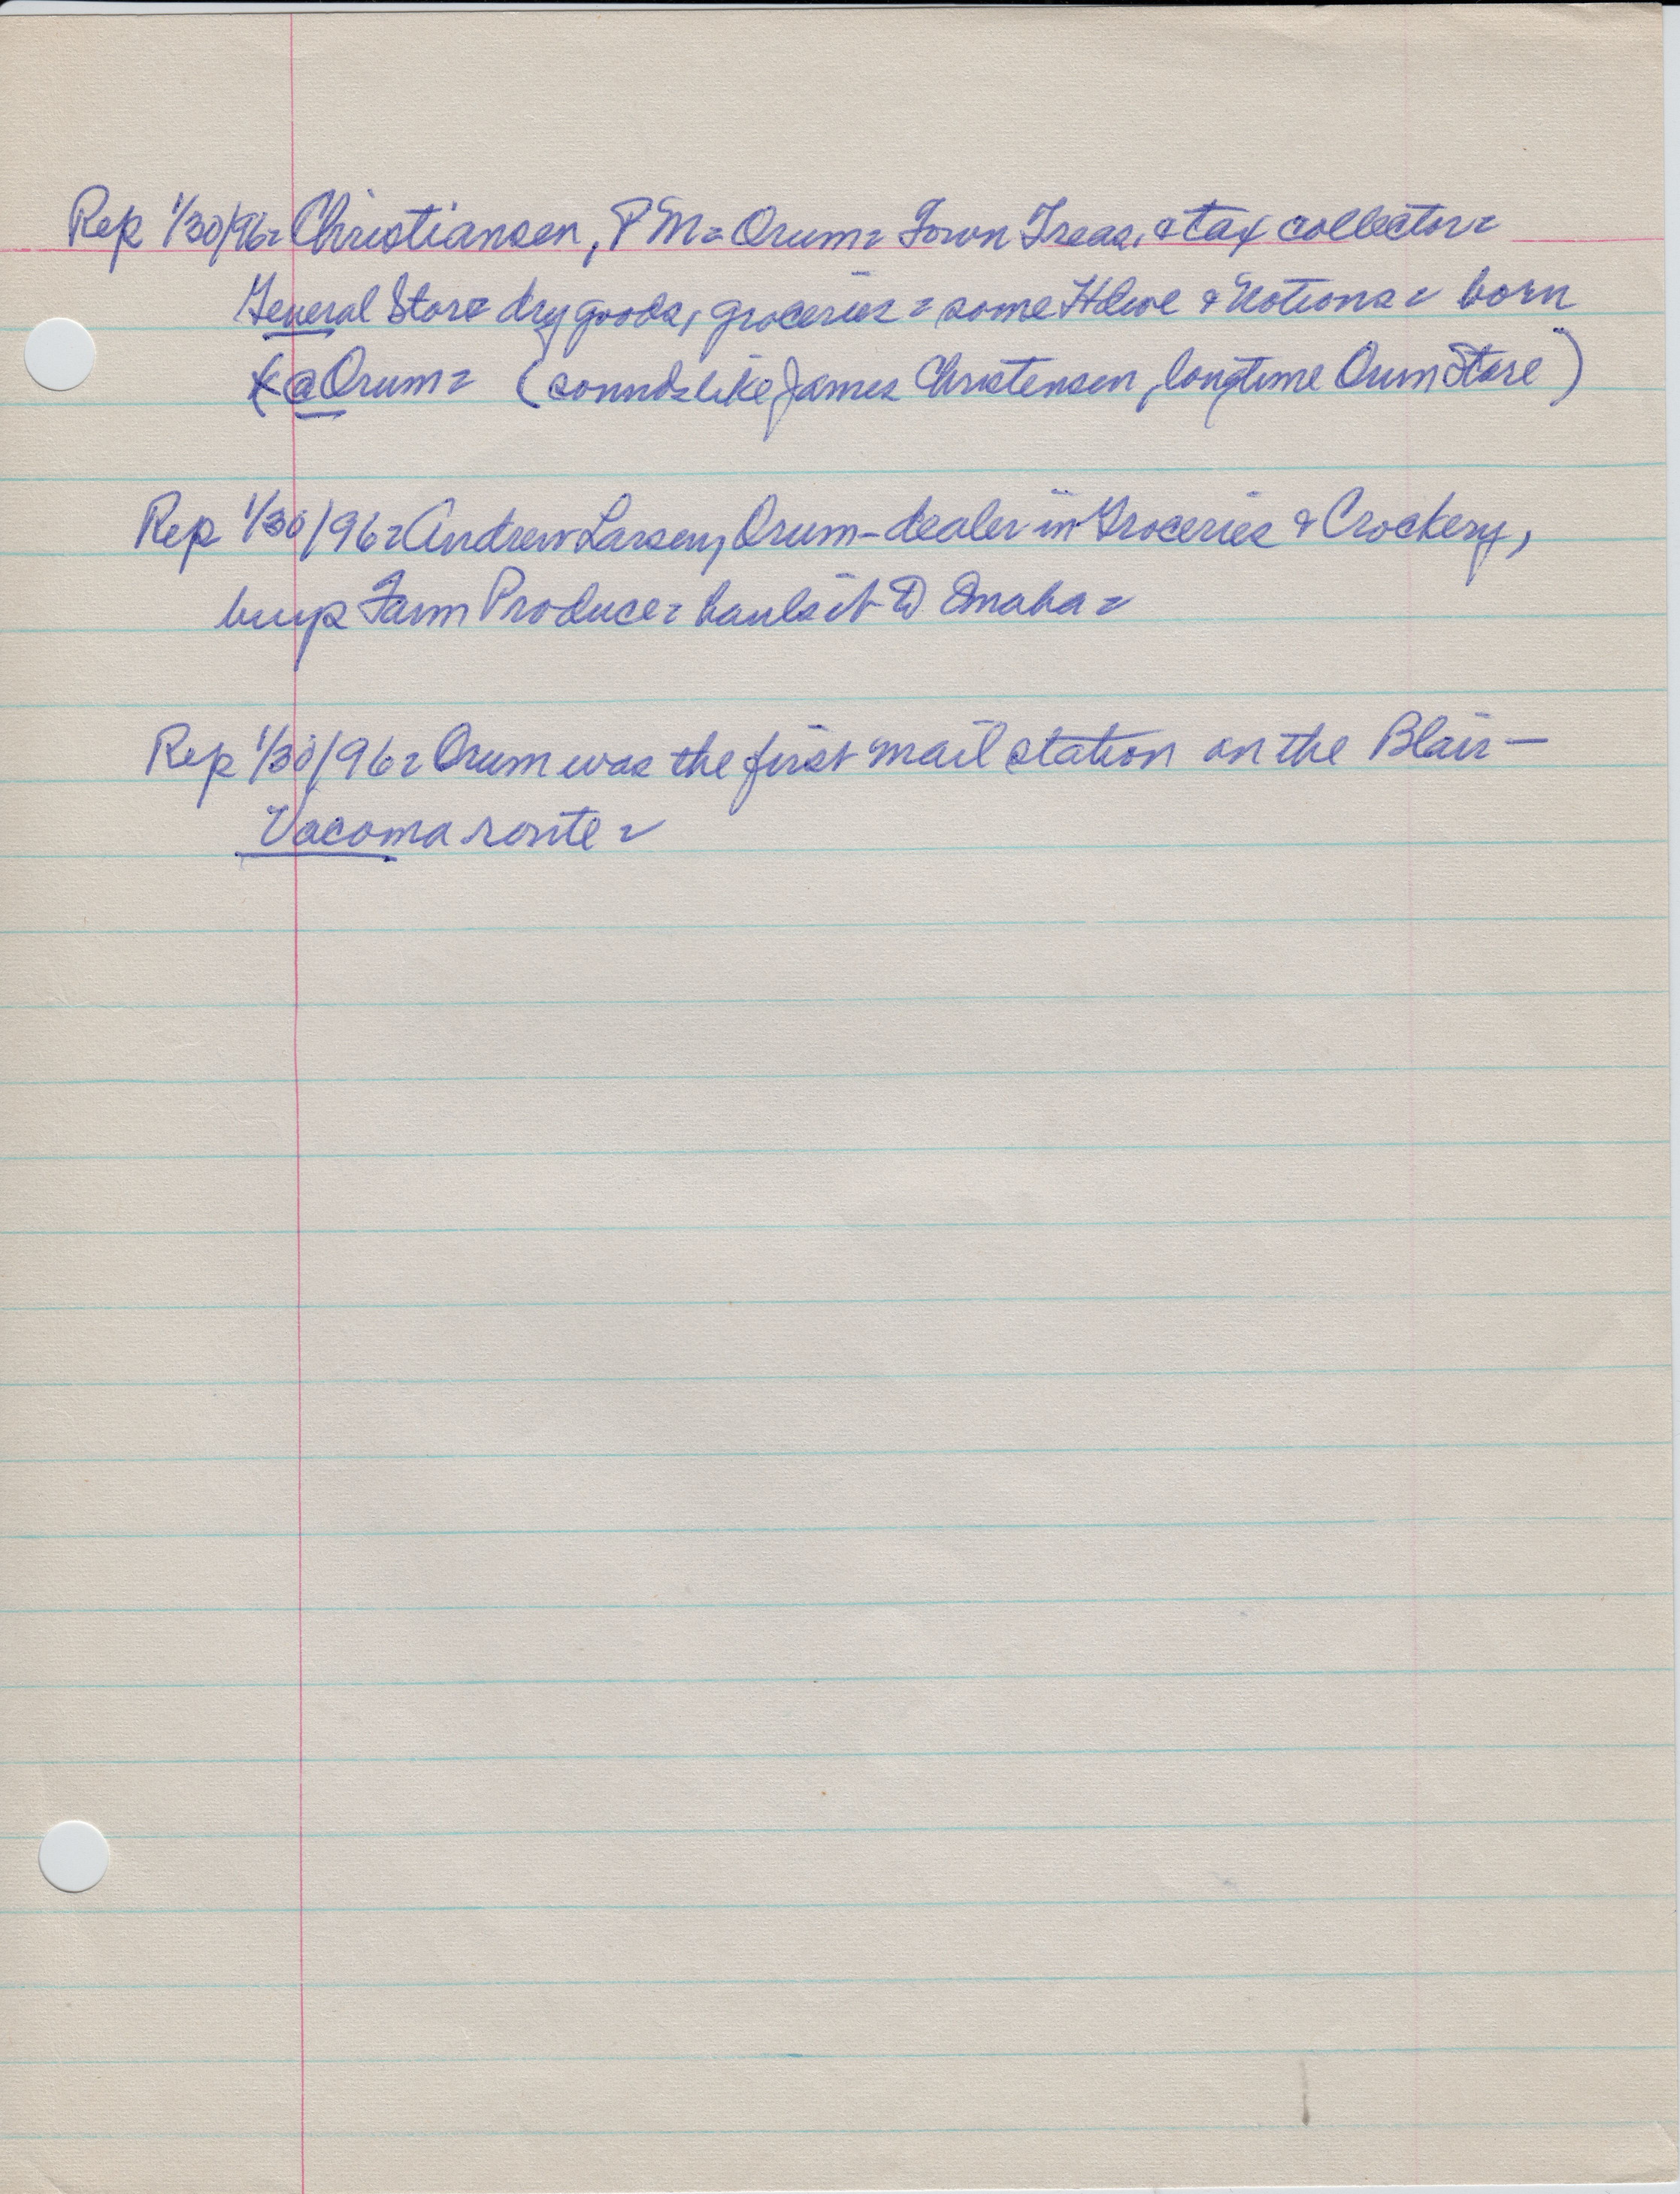 Rep 1/30/96= Christiansen, PM= Orum= Town Treas. & tax collector=
General Store dry goods, groceries = some Hdwe & Notions = born
@ Orum= (sounds like James Christensen, longtime Orum Store)
Rep 1/30/96= Andrew Larsen, Orum - dealer in Groceries & Crockery,
buys Farm Produce= hauls it to Omaha=
Rep 1/30/96= Orum was the first mail station on the Blair-
Vacoma route=